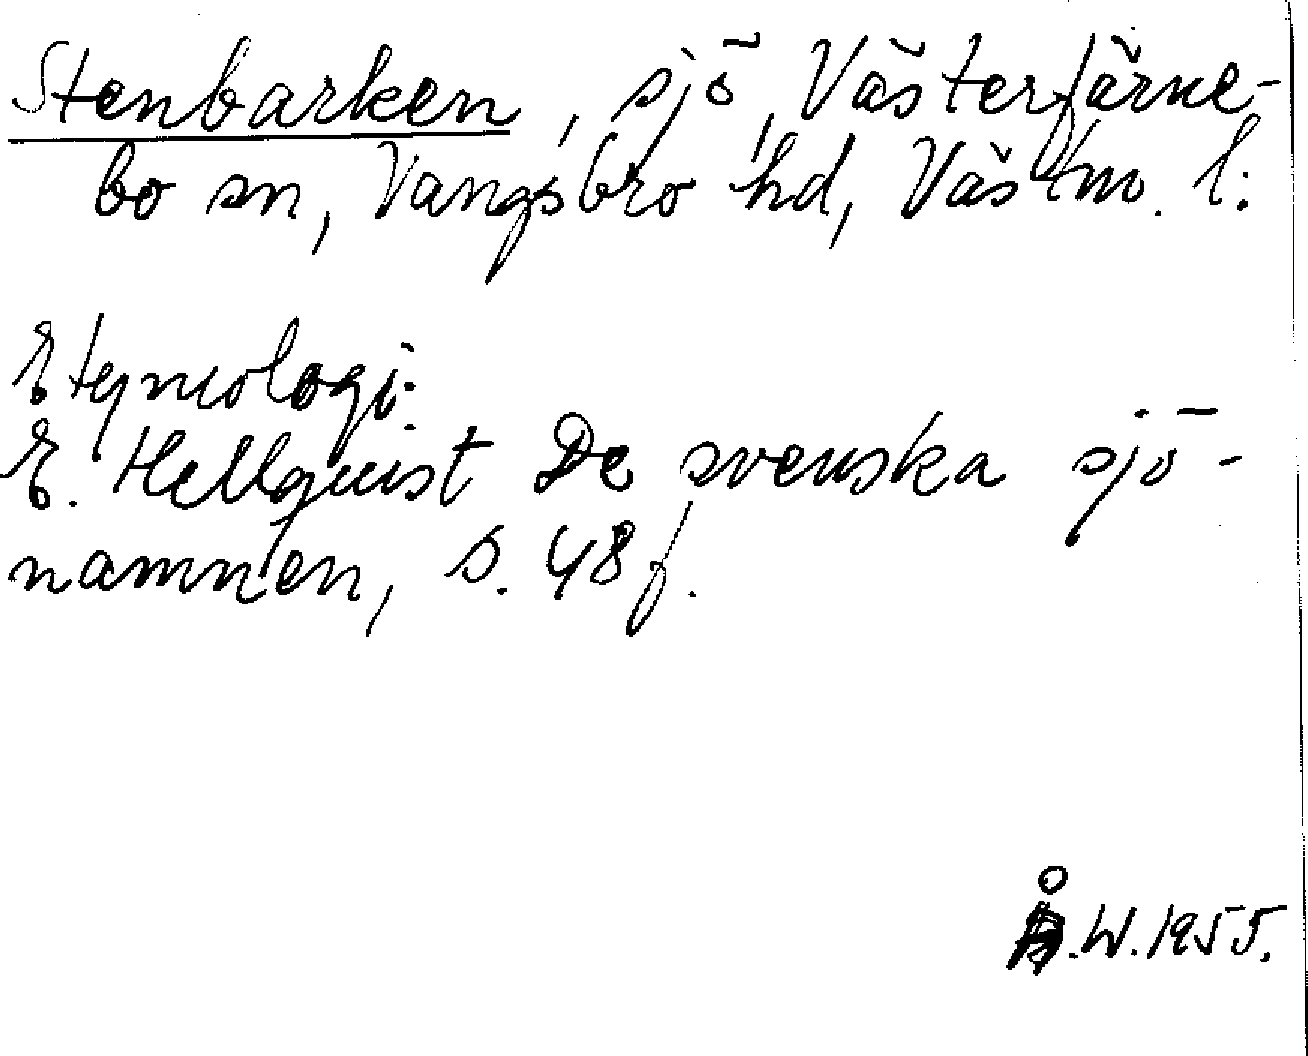 Stenbarken, sjö, Västerfärne-
bo sn, Vangsbro hd, Västm. l:
Etymologi:
E. Hellquist De svenska sjö-
namnen, s. 48 f.
Å.W. 1955.